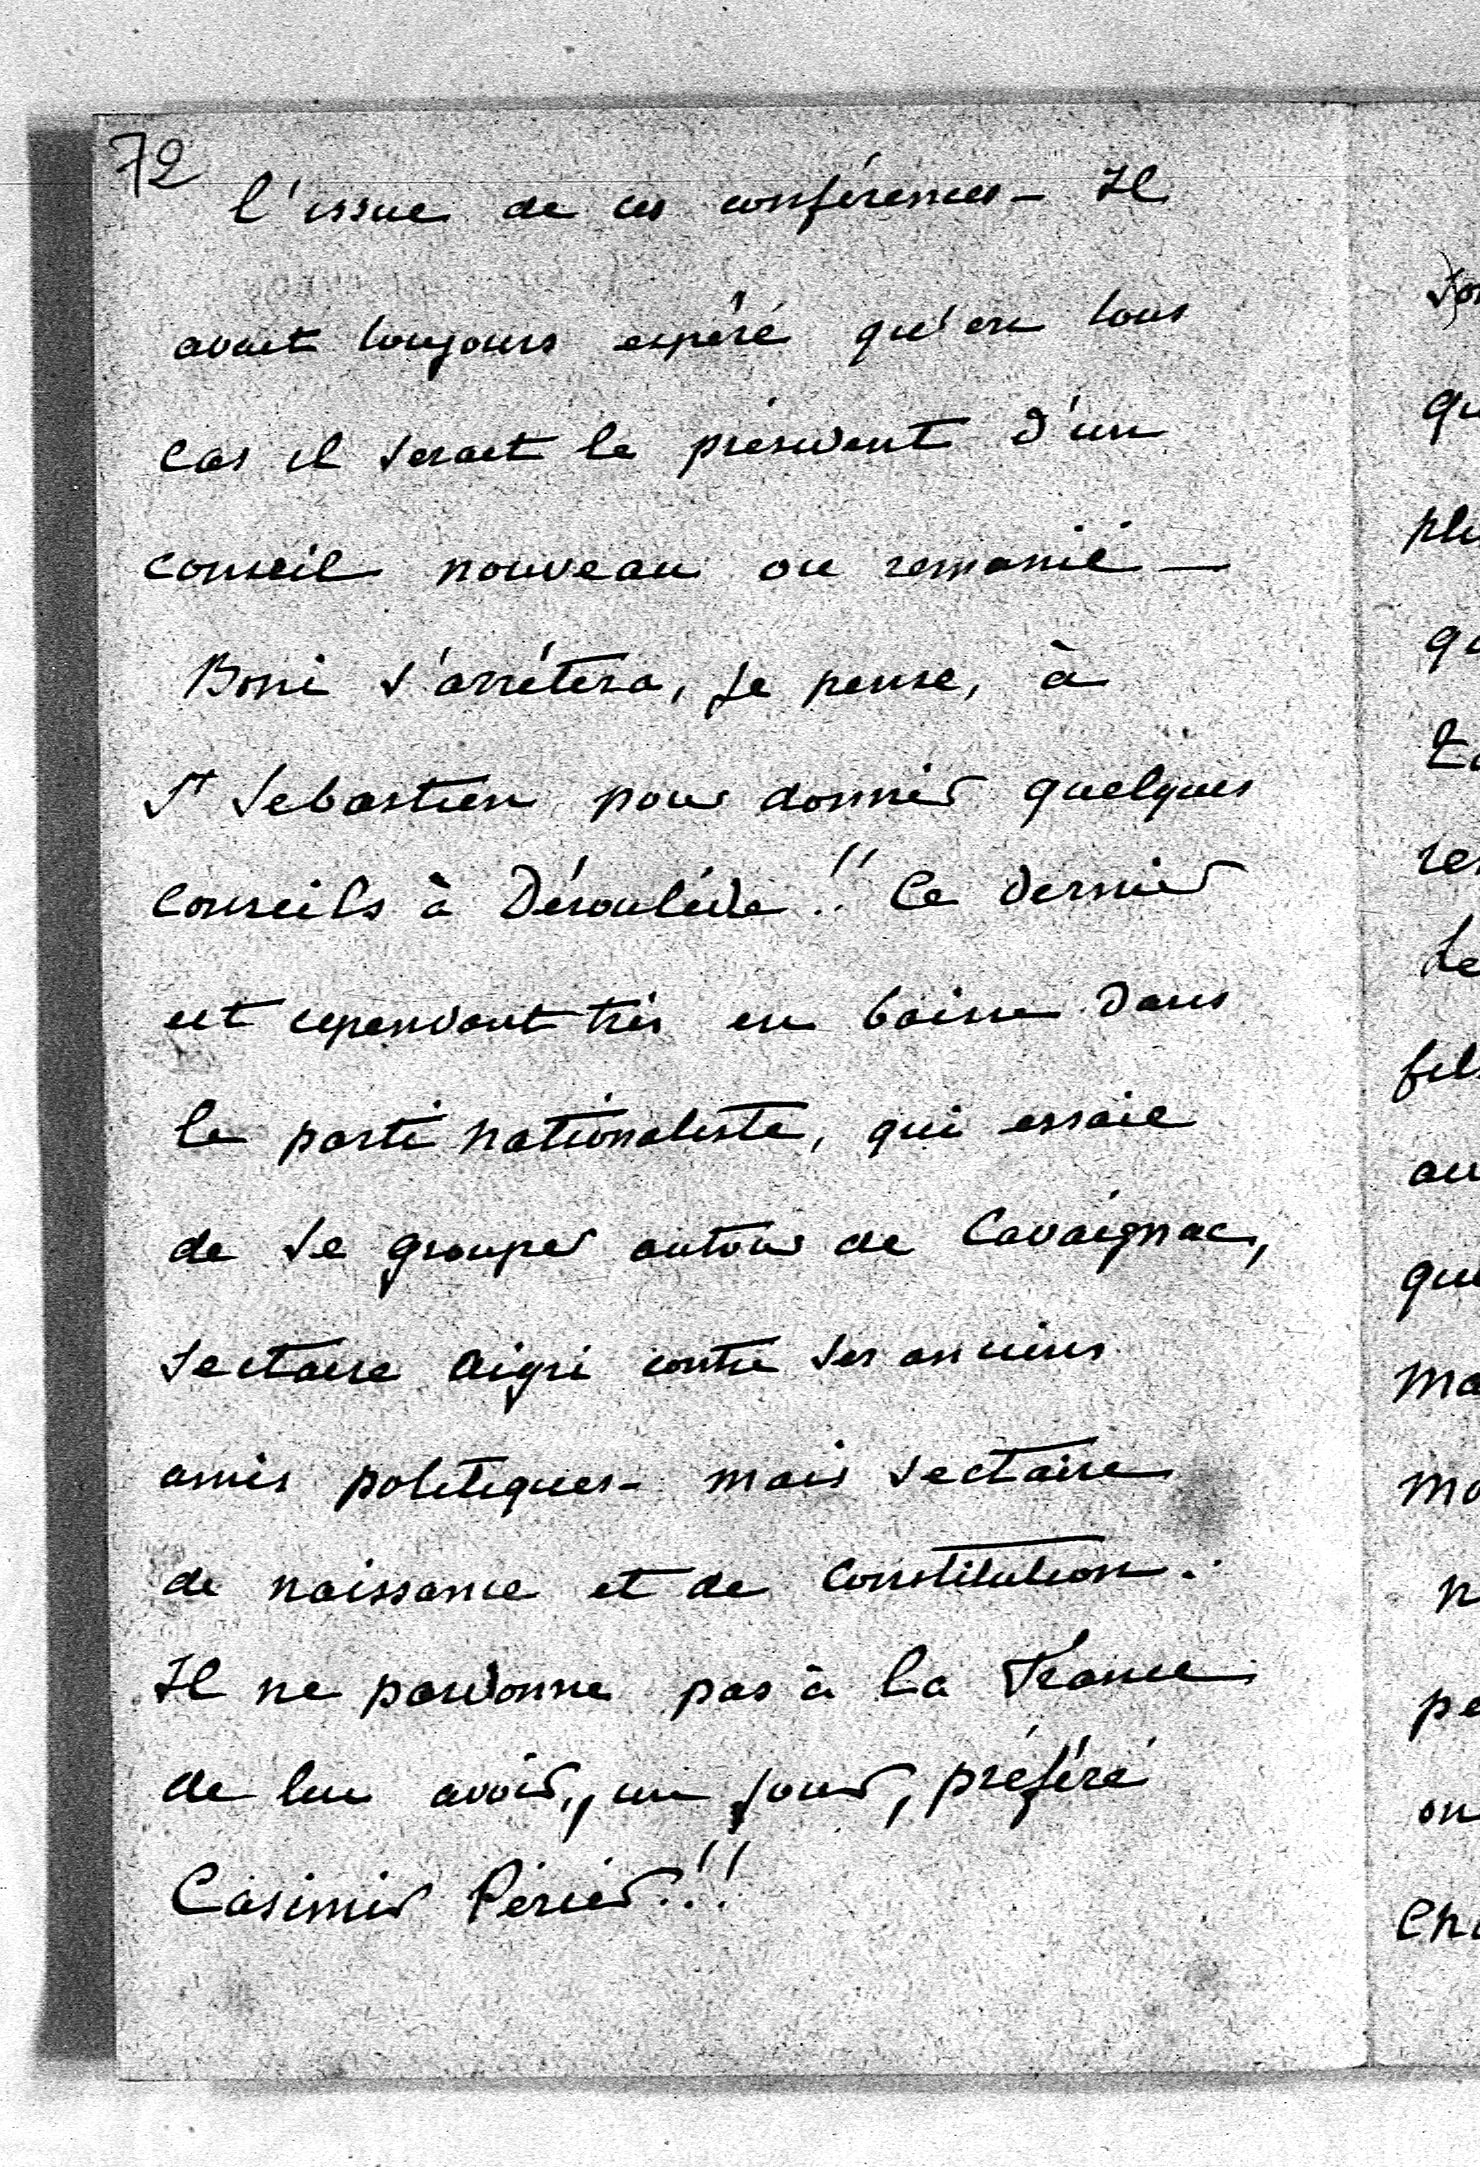 72
l'issue de ces conférences - Il
avait toujours espéré qu'en tous
cas il serait le président d'un
conseil nouveau ou remanié -
Boni s'arrêtera, je pense, à
St Sebastien pour donner quelques
conseils à Déroulède !! Ce dernier
est cependant très en baisse dans
le parti nationaliste, qui essaie
de se grouper autour de Cavaignac,
sectaire aigri contre ses anciens
amis politiques - mais sectaire
de naissance et de constitution.
Il ne pardonne pas à la France
de lui avoir, un jour, préféré
Casimir Périer !!